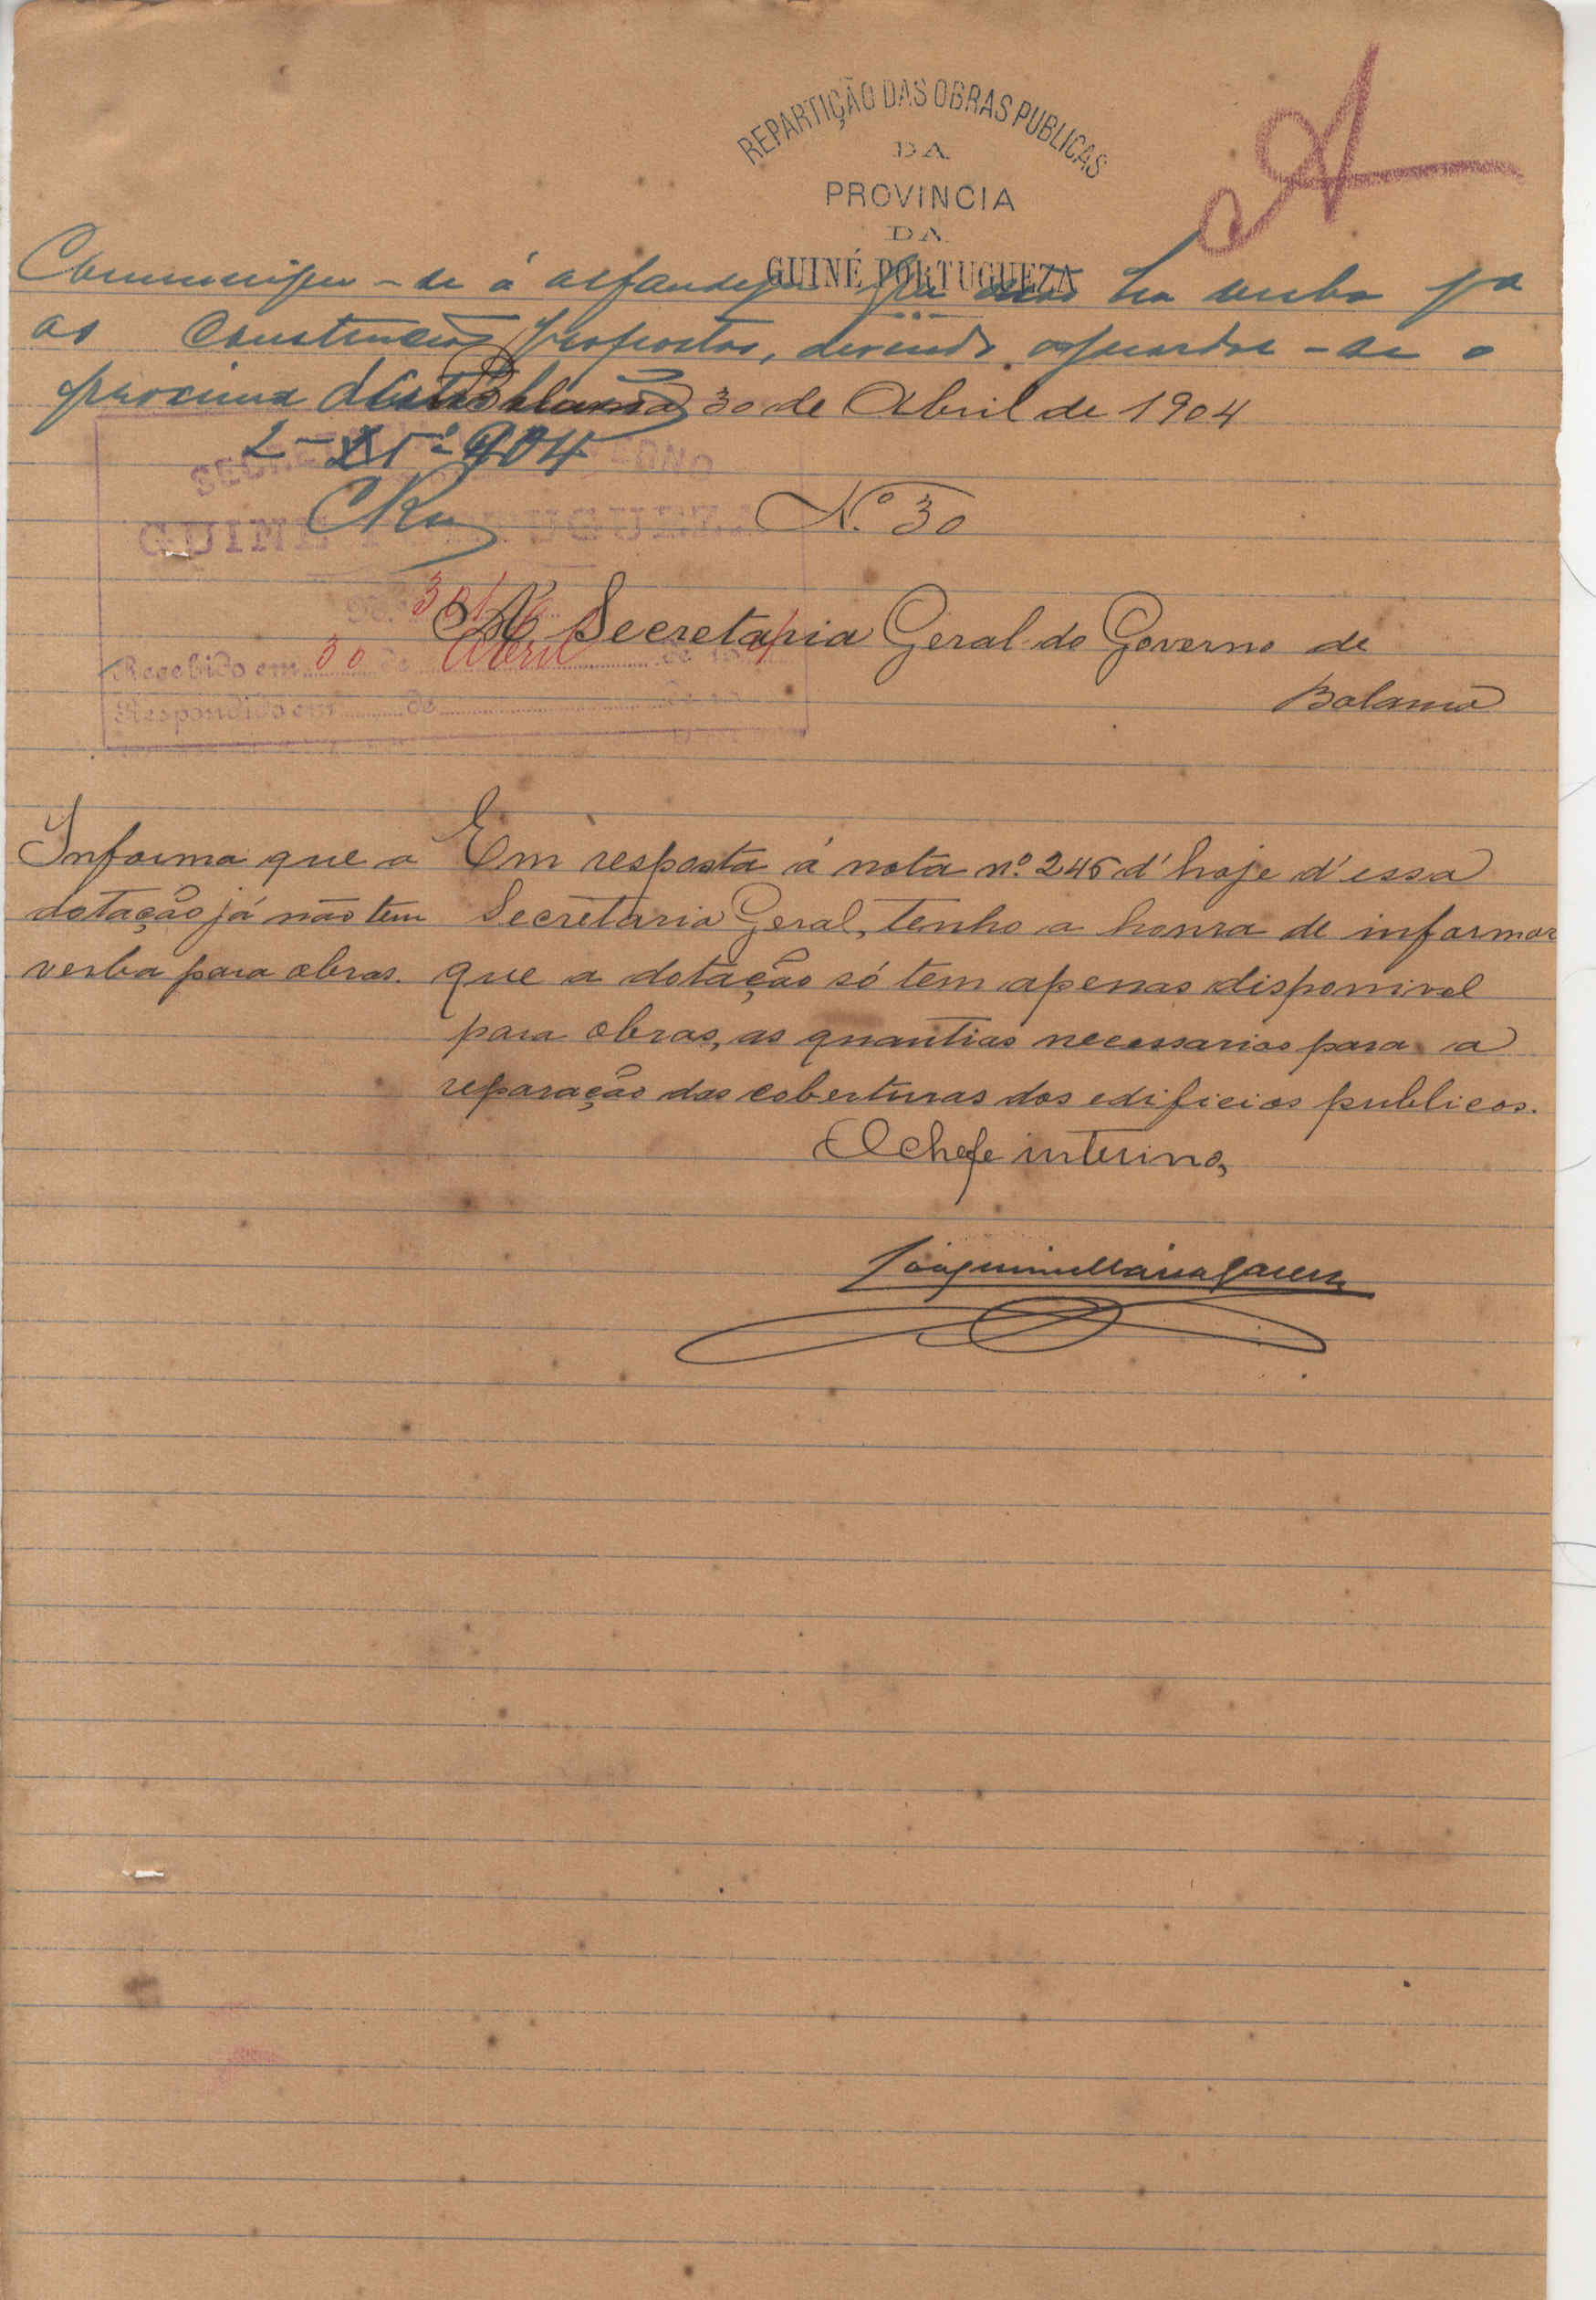 REPARTIÇÃO DAS OBRAS PUBLICAS
DA
PROVINCIA
DA
GUINÉ PORTUGUEZA
Communique-se á alfandega que não ha verba pª
as construcções propostas, devendo aguardar-se o
proxima
Bolama 30 de Abril de 1904
2-5º-904
Nº 30
GUINÉ PORTUGUEZA
Á Secretaria Geral do Governo de
Bolama
Recebido em 30 de Abril de 1904
Respondido em de de 190
Informa que a
dotação já não tem
verba para obras.
Em resposta á nota nº 246 d'hoje d'essa
Secretaria Geral, tenho a honra de informar
que a dotação só tem apenas disponivel
para obras, as quantias necessarias para a
reparação das coberturas dos edificios publicos.
O Chefe interino,
Joaquim Maria